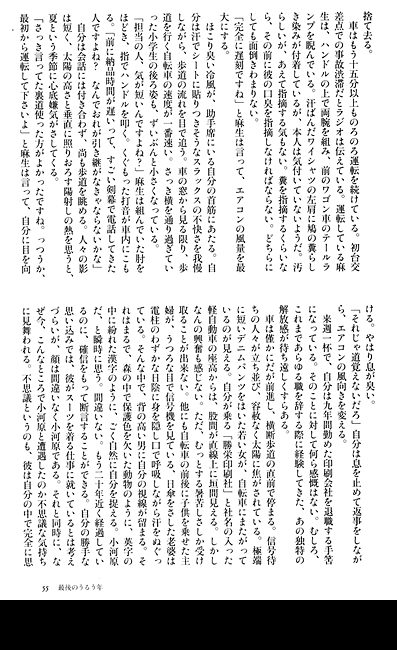 捨て去る。
　車はもう十五分以上ものろのろ運転を続けている。初台交
差点での事故渋滞だとラジオは伝えている。運転している麻
生は、ハンドルの上で両腕を組み、前のワゴン車のテールラ
ンプを睨んでいる。汗ばんだワイシャツの左肩に鳩の糞らし
き染みが付着しているが、本人は気付いていないようだ。汚
らしいが、あえて指摘する気もない。糞を指摘するくらいな
ら、その前に彼の口臭を指摘しなければならない。どちらに
しても面倒きわまりない。
「完全に遅刻ですね」と麻生は言って、エアコンの風量を最
大にする。
　ほこり臭い冷風が、助手席にいる自分の首筋にあたる。自
分は汗でシートに貼りつきそうなスラックスの不快さを我慢
しながら、歩道の流れを目で追う。車の窓から見る限り、歩
道を行く自転車の速度が一番速い。さっき横を通り過ぎてい
った小学生の後ろ姿も、ずいぶんと小さくなっている。
「担当の人、気が短いんですよね？」麻生は組んでいた肘を
ほどき、指でハンドルを叩く。くぐもった打音が車内にこも
る。「前に納品時間が遅いって、すごい剣幕で電話してきた
人ですよね？　なんでおれが引き継がなきゃならないかな」
　自分は会話には付き合わず、尚も歩道を眺める。人々の影
は短く、太陽の高さと垂直に照りおろす陽射しの熱を想うと、
夏という季節に心底嫌気がさしてくる。
「さっき言ってた裏道使った方がよかったですね。っつうか、
最初から運転して下さいよ」と麻生は言って、自分に目を向
ける。やはり息が臭い。
「それじゃ道覚えないだろ」自分は息を止めて返事をしなが
ら、エアコンの風向きを変える。
　来週一杯で、自分は九年間勤めた印刷会社を退職する手筈
になっている。そのことに対して何ら感慨はない。むしろ、
これまであらゆる職を辞する際に経験してきた、あの独特の
解放感が待ち遠しくすらある。
　車は僅かにだが前進し、横断歩道の直前で停まる。信号待
ちの人々が立ち並び、容赦なく太陽に焦がされている。極端
に短いデニムパンツをはいた若い女が、自転車にまたがって
いるのが見える。自分が乗る「勝栄印刷社」と社名の入った
軽自動車の座高からは、股間が直線上に垣間見える。しかし
なんの興奮も感じない。ただ、むっとする暑苦しさしか受け
取ることが出来ない。他にも自転車の前後に子供を乗せた主
婦が、うつろな目で信号機を見ている、日傘をさした老婆は
電柱のわずかな日陰に身を隠し口で呼吸しながら汗をぬぐっ
ている。そんな中で、背の高い男に自分の視線が留まる。そ
れはまるで、森の中で保護色を欠いた動物のように、英字の
中に紛れた漢字のように、ごく自然に自分を捉える。小河原
だ、と瞬時に思う。間違いない。もう二十年近く経過してい
るのに、確信をもって断言することができる。自分の勝手な
思い込みでは、彼がスーツを着る仕事に就いているとは考え
づらいが、顔は間違いなく小河原である。それと同時に、な
ぜ今、こんなところで小河原と遭遇したのか不思議な気持ち
に見舞われる。不思議というのも、彼は自分の中で完全に思
55　最後のうるう年